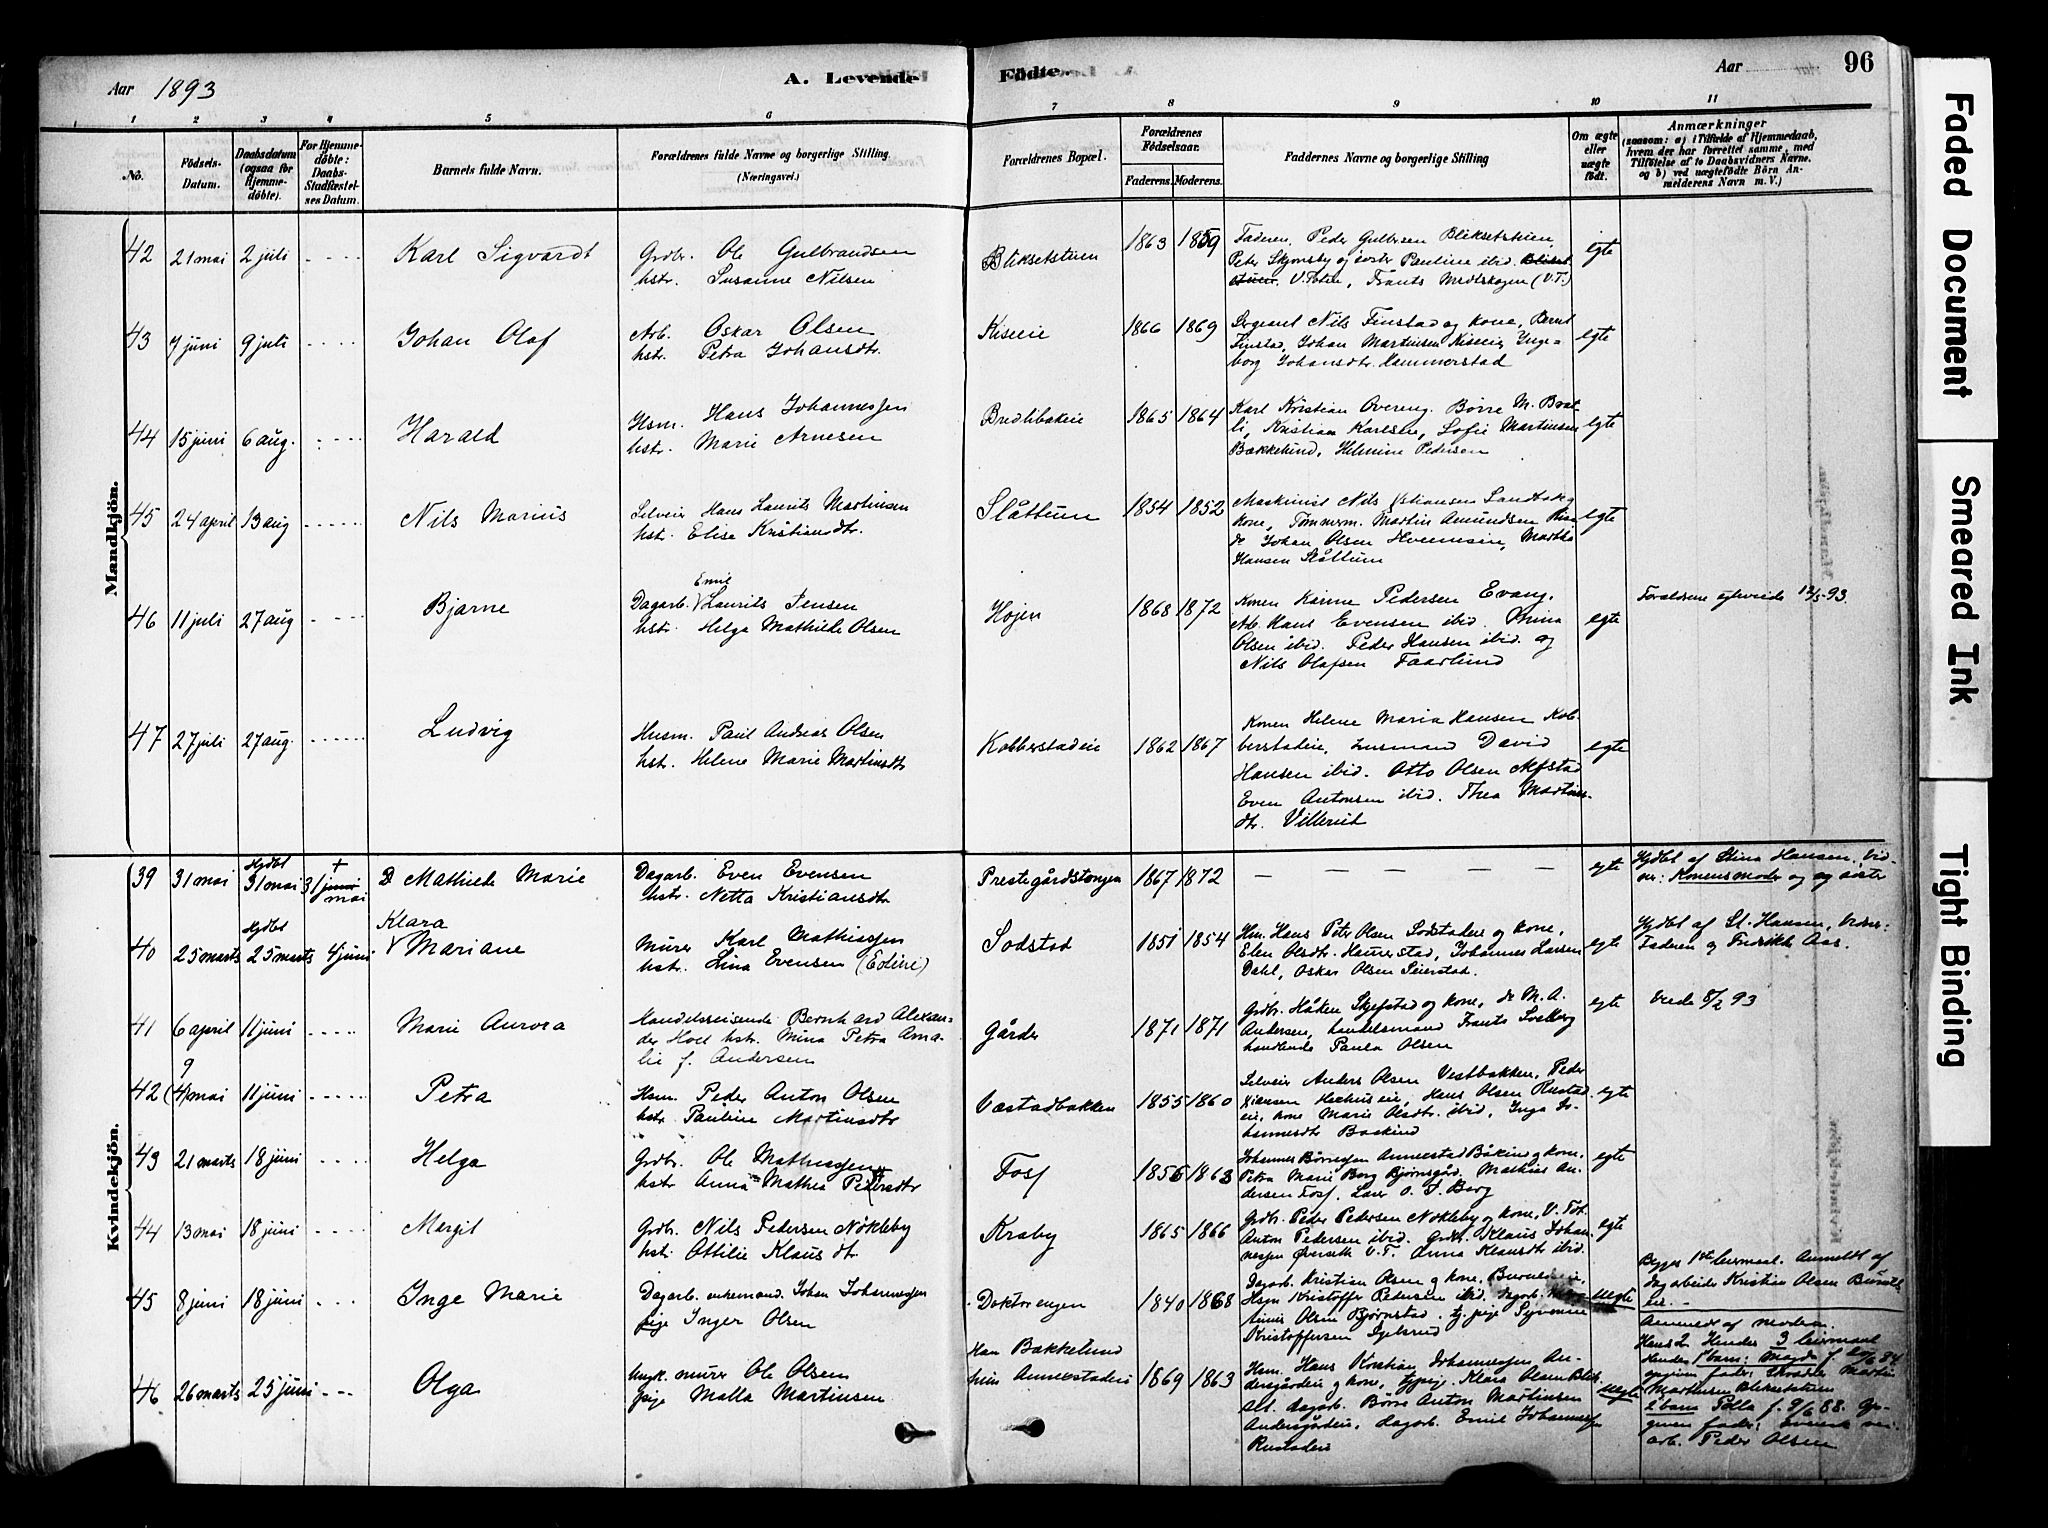 Aar 1893
A. Levende
Födte.
Aar
96
1 2 3 4 5 6 7 8 9 10 11
No.
Födsels-Datum.
Daabsdatum (ogsaa för Hjemmedöbte).
For Hjemmedöbte: Daabs-Stadfæstelses Datum.
Barnets fulde Navn.
Forældrenes fulde Navne og borgerlige Stilling. (Næringsvei.)
Forældrenes Bopæl.
Forældrenes Födselsaar.
Faderens. Moderens.
Faddernes Navne og borgerlige Stilling
Om ægte eller uægte födt.
Anmærkninger
(saasom: a) i Tilfælde af Hjemmedaab, hvem der har forrettet samme, med Tilföielse af to Daabsvidners Navne, og b) ved uægtefödte Börn Anmelderens Navn m. V.)
Mandkjön.
42 21 mai 2 juli Karl Sigvardt
Grdbr. Ole Gulbrandsen
hstr. Susanne Nilsen
Bliksetstuen 1863 1859
Faderen, Peder Gulbrsen Bliksetstuen,
Peter Skjønsby og søster Pauline ibid.
V. Toten, Frants Medtskogen (V.T.)
egte
43 7 juni 9 juli Johan Olaf
Arb. Oskar Olsen
hstr. Petra Johansdtr.
Kiseeie 1866 1869
Sergeant Nils Finstad og kone, Bernt
Finstad, Johan Martinsen Kiseeie, Inge-
borg Johansdtr. Hammerstad
egte
44 15 juni 6 aug. Harald
Hsm. Hans Johannessen
hstr. Marie Arnesen
Bredlibakeie 1865 1864
Karl Kristian Overeng. Børre M. Brat-
li, Kristian Karlsen, Sofie Martinsen
Bakkelund, Helmine Pedersen
egte
45 24 april 13 aug Nils Marius
Selveier Hans Laurits Martinsen
hstr. Elise Kristiansdtr.
Slåttum 1854 1852
Maskinist Nils
kone, Tømmerm. Martin Amundsen
Johan Olsen Martha
Hansen Slåttum
egte
46 11 juli 27 aug Bjarne
Emil
Dagarb. Laurits Jensen
hstr. Helga Mathilde Olsen
Højen 1868 1872
Konen Karine Pedersen Evang.
Arb. Hans Evensen ibid. Mina
Olsen ibid. Peder Hansen ibid. og
Nils Olafsen Faarlund
egte
Forældrene egteviede 12/5-93.
47 27 juli 27 aug. Ludvig
Husm. Paul Andreas Olsen
hstr. Helene Marie Martinsdtr
Kobberstadeie 1862 1867
Konen Helene Maria Hansen Kob-
berstadeie, husmand David
Hansen ibid. Otto Olsen Alfstad
Even Antonsen ibid. Thea Martins-
dtr. Villerud
egte
Kvindekjön.
39 31 mai Hjdbt 31 mai + 31 mai D Mathilde Marie
Dagarb. Even Evensen
hstr. Netta Kristiansdtr
Prestegårdstangen 1867 1872
— — — — —
egte
Hjdbt af Stina Hansen. Vid-
ner: Konens moder og søster
40 25 marts Hjdbt 25 marts 4 juni Klara Mariane
Murer Karl Mathiassen
hstr. Lina Evensen (Eline)
Sodstad 1851 1854
Hsm. Hans Peter Olsen Sodstadeie og kone,
Elen Olsdtr. Hamerstad, Johannes Larsen
Dahl, Oskar Olsen Seierstad.
egte
Hjdbt af St. Hansen, Vidner:
Faderen og Fredrikke Aas.
41 6 april 11 juni Marie Aurora
Handelsreisende Bernhard Alexan-
der Hoel hstr. Mina Petra Ama-
lie f. Andersen
Gårder 1871 1871
Grdbr. Håken Skjefstad og kone, M. A.
Andersen, handelsmand Frants Solberg
handlende Paula Olsen
egte
viede 8/2 93
42 (4 mai 9 11 juni Petra
Hsm. Peder Anton Olsen
hstr. Pauline Martinsdtr
Væstadbakken 1855 1860
Selveier Anders Olsen Vestbakken, Peder
Hans Olsen Rustad-
eie, kone Marie Olsdtr. ibid, Inga Jo-
hannesdtr Baskrud
egte
43 21 marts 18 juni Helga
Grdbr. Ole Mathiassen
hstr Anna Mathea Pedersdtr
Foss 1856 1863
Johannes Børresen Annerstad Båkind og kone,
Petra Marie Borg Bjørnsgård, Mathias An-
dersen Foss. Lærer O. J. Berg
egte
44 13 mai 18 juni Margit
Grdbr. Nils Pedersen Nøkleby
hstr. Ottilie Klausdtr.
Kraby 1865 1866
Grdbr. Peder Pedersen Nøkleby og kone, V. Tot.
Anton Pedersen ibid. Grdbr. Klaus Johan-
nessen Øverseth V.T. Anna Klausdtr ibid.
egte
45 8 juni 18 juni Inge Marie
Dagarb. enkemand Johan Johannessen
pige Inger Olsen
Doktorengen 1840 1868
Dagarb. Kristian Olsen og kone,
Hsm Kristoffer Pedersen ibid,
Olsen Bjørnstad, tj. pige Syverine
Kristoffersen Igelsrud
uegte
Begges 1ste leiermaal. Anmeldt af
dagarbeider Kristian Olsen
46 26 marts 25 juni Olga
Ungk. murer Ole Olsen
pige Malla Martinsen
Han Bakkelund
hun Annerstadeie 1869 1863
Hsm. Hans Kristian Johannessen An-
dersgårdeie og kone, Klara Olsen
dagarb. Børre Anton Martinsen
Andersgårdeie, dagarb. Emil Johannessen
Rustadeie
uegte
Anmeldt af moderen.
Hans 2 Hendes 3 leiermaal
Hendes 1ste barn: Magda f. 84
opgiven fader: Martin
Martinsen Bliksetstuen
2 barn Polla f. 9/6 88. Op-
given fader: svensk
arb. Peder Olsen
Faded Document
Smeared Ink
Tight Binding